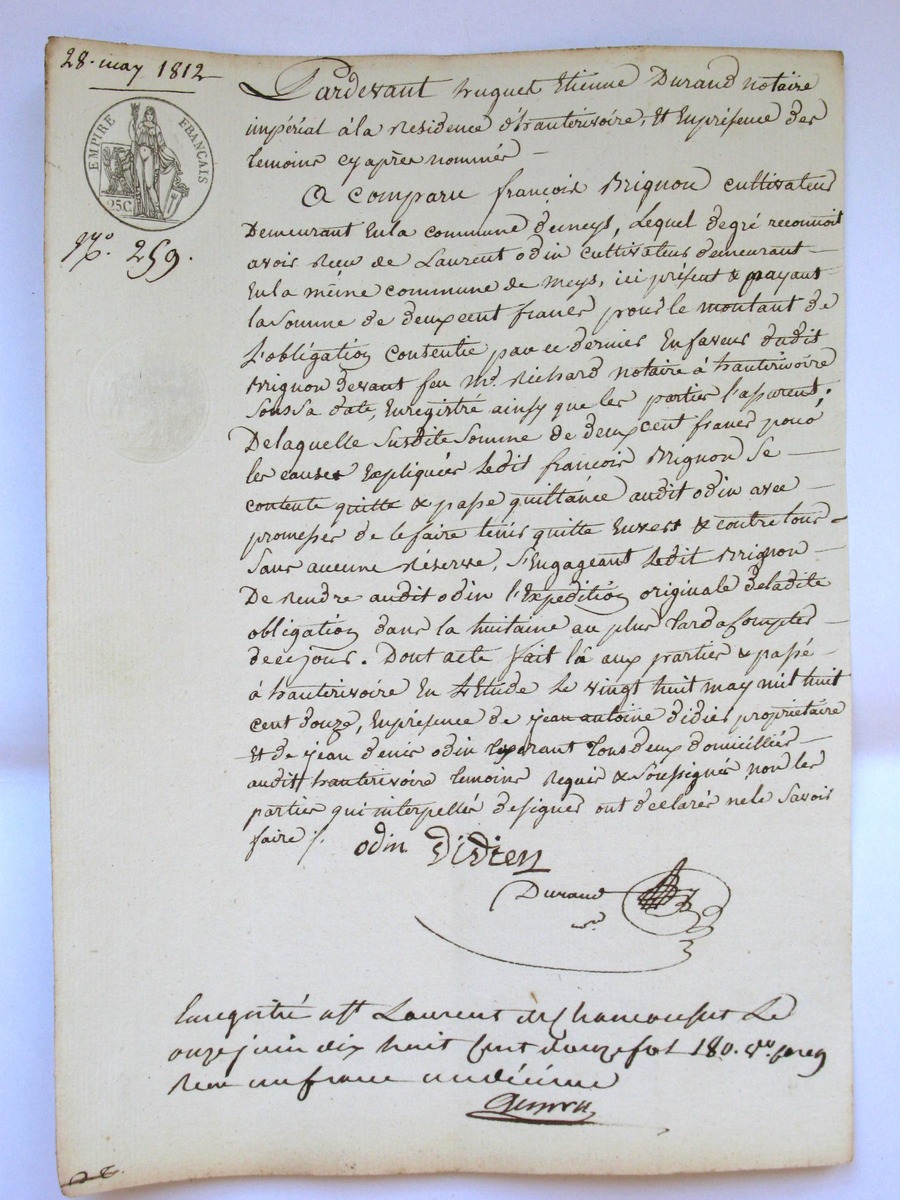 28. may 1812
EMPIRE FRANÇAIS
25C
N.º 259.
Pardevant huguet Etienne Durand notaire
impérial à la Residence d'hauterivoire, Et En présence des
temoins cy après nommés
A comparu françois Brignon cultivateur
Demeurant En la commune de meys, Lequel de gré reconnoit
avoir Recu de Laurent odin cultivateur demeurant
En la même commune de Meys, ici présent & payant
la Somme de deux cent francs pour le montant de
L'obligation Contentie par ce dernier En faveur dudit
Brignon devant feu Me. Richard notaire à hauterivoire
Sous Sa date, Enregistré ainsy que les partier l'asparent,
De laquelle Susdite Somme de deux cent francs pour
les causes Expliquées Ledit françois Brignon Se
contente quitte & passe quittance audit odin avec
promesses de le faire tenir quitte Envers & contre tous
Sans aucune Réserve, S'Engageant Ledit Brignon
De Rendre audit odin l'Expedition originale de ladite
obligation dans la huitaine au plus tard a Compter
de ce jour. Dont acte fait lû aux parties & passé
à hauterivoire En L'Etude Le vingt huit may mil huit
cent douze, En présence de jean antoine didier propriétaire
Et de jean denis odin tous deux domiciliés
audit hauterivoire temoins Requis & Soussignés non les
parties qui interpellés de signer ont déclarés ne le Savoir
faire /.
odin Didier
Durand
Enregistré à St Laurent de Chamousset Le
onze juin dix huit Cent douze fol 180.
Recu un franc un décime